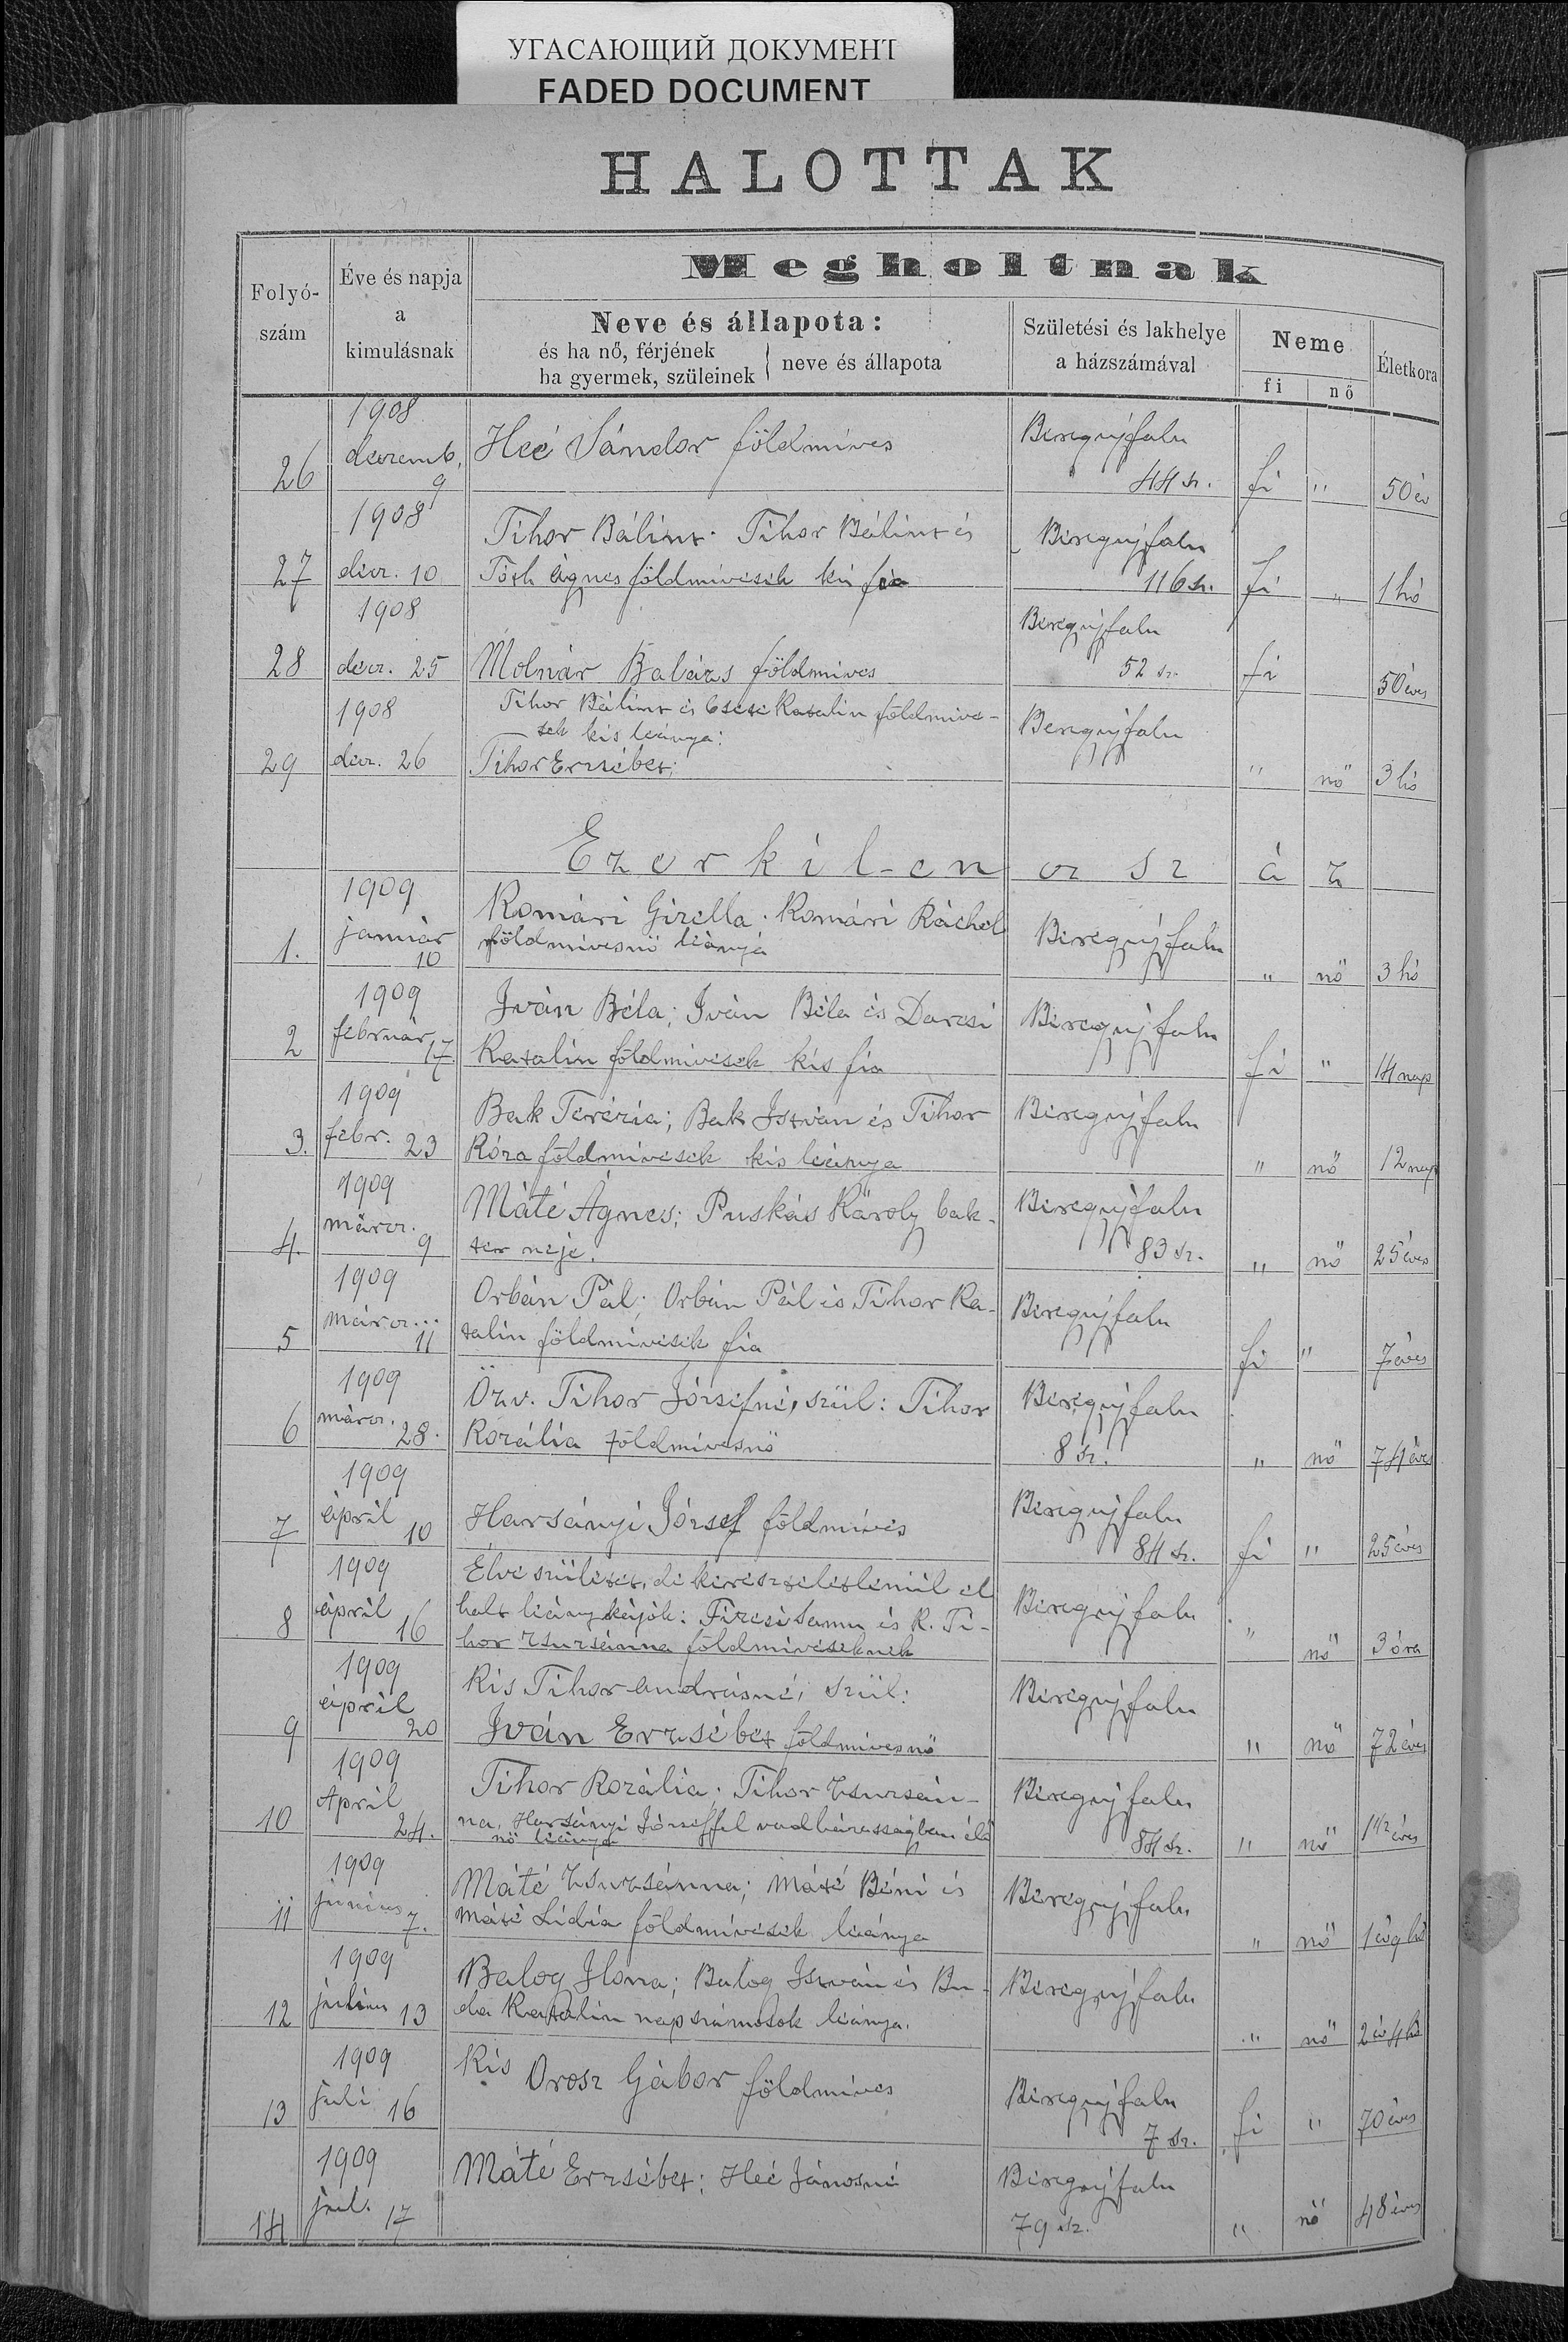 УГАСАЮЩИЙ ДОКУМЕНТ
FADED DOCUMENT
HALOTTAK
Folyó-
szám
Éve és napja
a
kimulásnak
Megholtnak
Neve és állapota:
és ha nő, férjének
ha gyermek, szüleinek
neve és állapota
Születési és lakhelye
a házszámával
Neme
fi
nő
Életkora
1908
26 decemb. 9 Heé Sándor földmíves Beregújfalu 44 sz. fi " 50 év
1908
Tihor Bálint. Tihor Bálint és Beregújfalu
27 decz. 10 Tóth Ágnes földmívesek kis fia 116 sz. fi " 1 hó
1908 Beregújfalu
28 decz. 25 Molnár Balázs földmíves 52 sz. fi 50 éves
1908 Tihor Bálint és Csese Katalin földmíve-
sek kis leánya: Beregújfalu
29 decz. 26 Tihor Erzsébet; " nő 3 hó
Ezerkilenczszáz
1909 Komári Gizella. Komári Ráchel
1. január 10 földmívesnő leánya Beregújfalu " nő 3 hó
1909 Iván Béla; Iván Béla és Darcsi Beregújfalu
2 február 17. Katalin földmívesek kis fia fi " 14 nap
1909 Bak Terézia; Bak István és Tihor Beregújfalu
3. febr. 23 Róza földmívesek kis leánya " nő 12 nap
1909 Máté Ágnes; Puskás Károly bak- Beregújfalu
4. márcz. 9 ter neje. 83 sz. " nő 25 éves
1909 Orbán Pál; Orbán Pál és Tihor Ka- Beregújfalu
5 márcz. 11 talin földmívesek fia fi " 7 éves
1909 Özv. Tihor Józsefné, szül: Tihor Beregújfalu
6 márcz. 28. Rozália földmívesnő 8 sz. " nő 74 éves
1909 Beregújfalu
7 ápril 10 Harsányi József földmíves 84 sz. fi " 25 éves
1909 Élve született, de kereszteletlenül el
halt leánykájok: Firesi Samu és K. Ti- Beregújfalu
8 ápril 16 hor Zsuzsánna földmíveseknek " nő 3 óra
1909 Kis Tihor Andrásné, szül: Beregújfalu
9 ápril 20 Iván Erzsébet földmívesnő " nő 72 éves
1909 Tihor Rozália. Tihor Zsuzsán- Beregújfalu
10 April 24. na, Harsányi Józseffel vadházasságban élő 84 sz. " nő 1 1/2 éves
nő leánya
1909 Máté Zsuzsánna; Máté Béni és Beregújfalu
11 június 7. Máté Lidia földmívesek leánya " nő 1 év 9 hó
1909 Balog Ilona; Balog István és Bu- Beregújfalu
12 13 da Katalin napszámosok leánya. " nő 2 év 4 hó
1909 Kis Orosz Gábor földmíves Beregújfalu
13 juli 16 7 sz. fi " 70 éves
1909 Máté Erzsébet; Heé Jánosné Beregújfalu
14 jul. 17 79 sz. " nő 48 éves